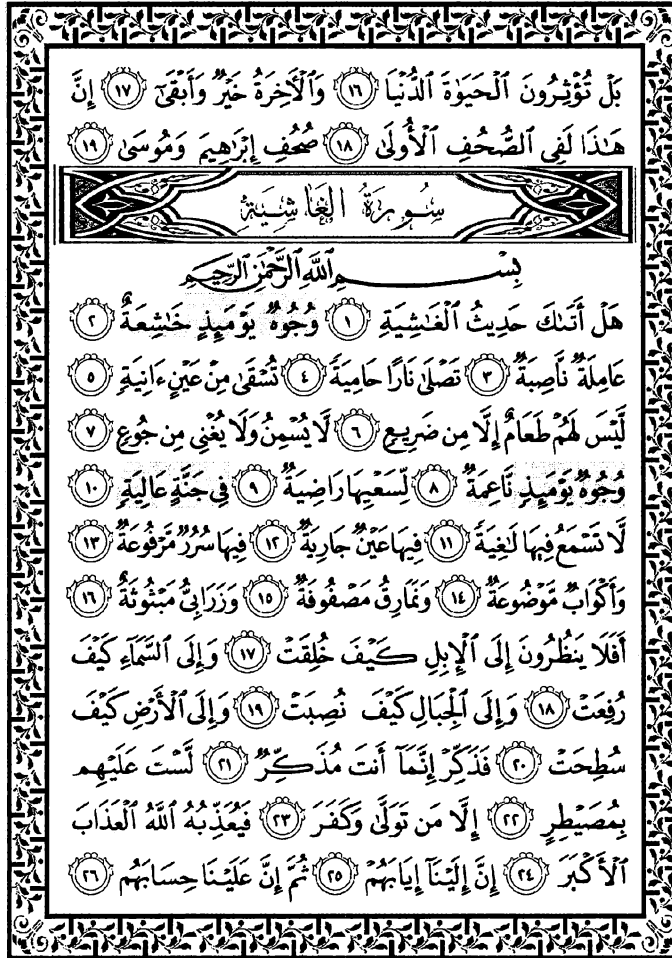 بَلْ تُؤْثِرُونَ ٱلْحَيَوٰةَ ٱلدُّنْيَا ١٦ وَٱلْأَخِرَةُ خَيْرٌ وَأَبْقَىٰٓ ١٧ إِنَّ
هَـٰذَا لَفِى ٱلصُّحُفِ ٱلْأُولَىٰ ١٨ صُحُفِ إِبْرَٰهِيمَ وَمُوسَىٰ ١٩
سُورَةُ الغَاشِيَةِ
بِسْمِ اللَّهِ الرَّحْمَٰنِ الرَّحِيمِ
هَلْ أَتَىٰكَ حَدِيثُ ٱلْغَـٰشِيَةِ ١ وُجُوهٌ يَوْمَئِذٍ خَـٰشِعَةٌ ٢
عَامِلَةٌ نَّاصِبَةٌ ٣ تَصْلَىٰ نَارًا حَامِيَةً ٤ تُسْقَىٰ مِنْ عَيْنٍ ءَانِيَةٍ ٥
لَّيْسَ لَهُمْ طَعَامٌ إِلَّا مِن ضَرِيعٍ ٦ لَّا يُسْمِنُ وَلَا يُغْنِى مِن جُوعٍ ٧
وُجُوهٌ يَوْمَئِذٍ نَّاعِمَةٌ ٨ لِّسَعْيِهَا رَاضِيَةٌ ٩ فِى جَنَّةٍ عَالِيَةٍ ١٠
لَّا تَسْمَعُ فِيهَا لَـٰغِيَةً ١١ فِيهَا عَيْنٌ جَارِيَةٌ ١٢ فِيهَا سُرُرٌ مَّرْفُوعَةٌ ١٣
وَأَكْوَابٌ مَّوْضُوعَةٌ ١٤ وَنَمَارِقُ مَصْفُوفَةٌ ١٥ وَزَرَابِىُّ مَبْثُوثَةٌ ١٦
أَفَلَا يَنظُرُونَ إِلَى ٱلْإِبِلِ كَيْفَ خُلِقَتْ ١٧ وَإِلَى ٱلسَّمَآءِ كَيْفَ
رُفِعَتْ ١٨ وَإِلَى ٱلْجِبَالِ كَيْفَ نُصِبَتْ ١٩ وَإِلَى ٱلْأَرْضِ كَيْفَ
سُطِحَتْ ٢٠ فَذَكِّرْ إِنَّمَآ أَنتَ مُذَكِّرٌ ٢١ لَّسْتَ عَلَيْهِم
بِمُصَيْطِرٍ ٢٢ إِلَّا مَن تَوَلَّىٰ وَكَفَرَ ٢٣ فَيُعَذِّبُهُ ٱللَّهُ ٱلْعَذَابَ
ٱلْأَكْبَرَ ٢٤ إِنَّ إِلَيْنَآ إِيَابَهُمْ ٢٥ ثُمَّ إِنَّ عَلَيْنَا حِسَابَهُم ٢٦